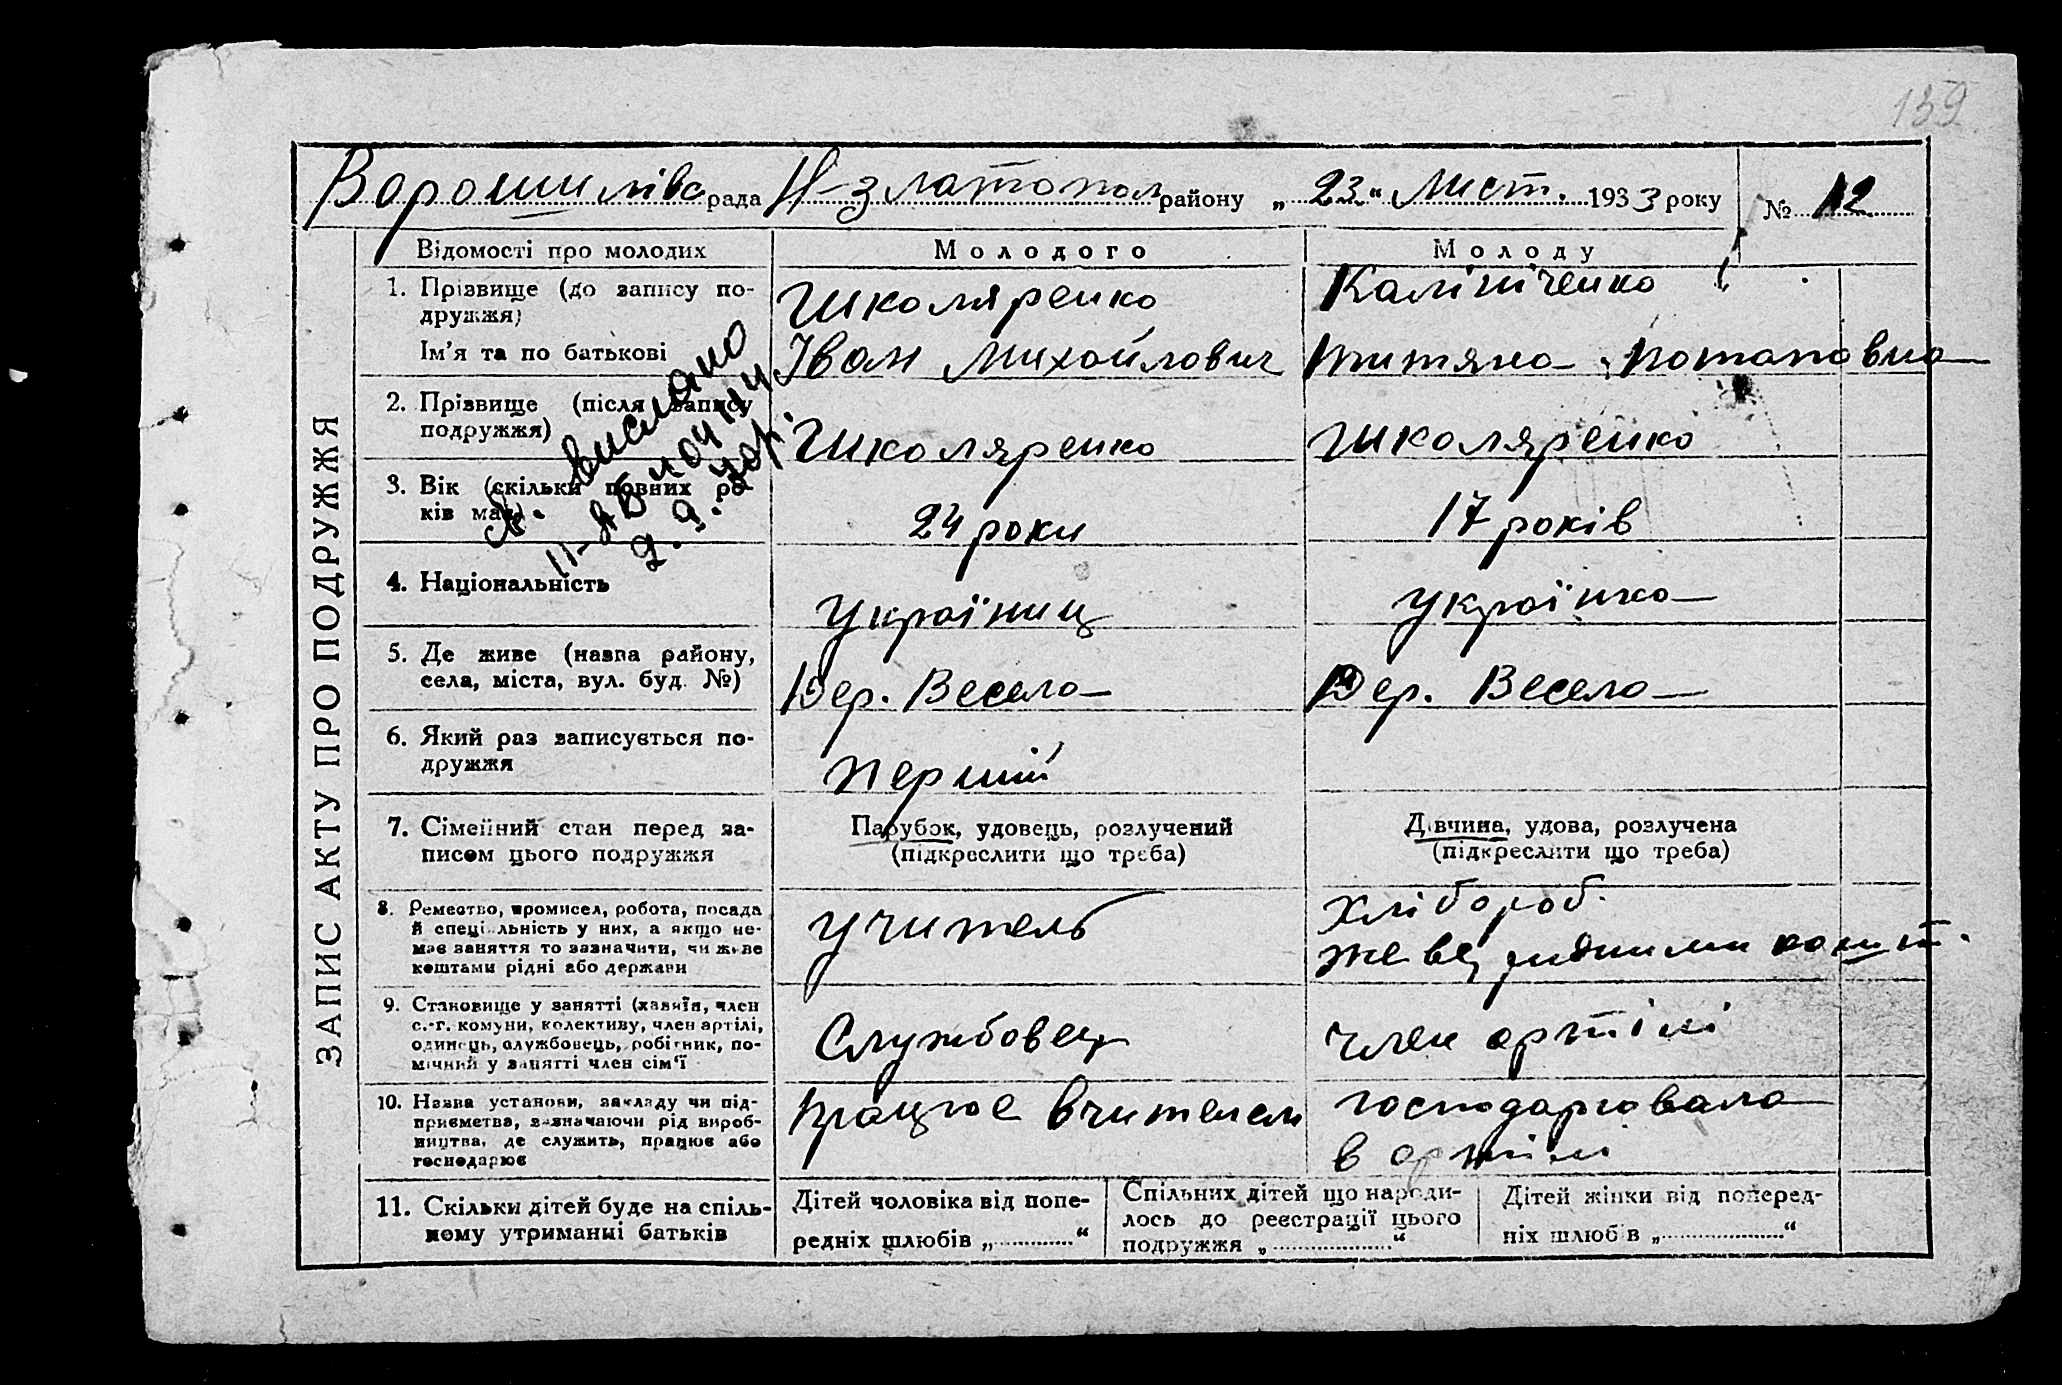 139
Ворошилівс рада Н-златопол району „ 23 “ Лист. 1933 року № 12
ЗАПИС АКТУ ПРО ПОДРУЖЖЯ
Відомості про молодих Молодого Молоду
1. Прізвище (до запису по- Школяренко Калініченко
дружжя)
Ім'я та по батькові Іван Михайлович Титяна Потаповна
2. Прізвище (після запису
подружжя) Школяренко Школяренко
3. Вік (скільки повних ро-
ків має) 24 роки 17 років
вислано
4. Національність Українец українка
5. Де живе (назва району,
села, міста, вул. буд. №) Дер. Весела Дер. Весела
6. Який раз записується по-
дружжя перший
7. Сімейний стан перед за- Парубок, удовець, розлучений Дівчина, удова, розлучена
писом цього подружжя (підкреслити що треба) (підкреслити що треба)
8. Ремество, промисел, робота, посада хлібороб.
й спеціальність у них, а якщо не- учитель
має заняття то зазначити, чи живе
коштами рідні або держави
9. Становище у занятті (хазяїн, член
с.-г. комуни, колективу, член артілі, Службовец член артілі
одинець, службовець, робітник, по-
мічний у занятті член сім'ї
10. Назва установи, закладу чи під- працює вчителем господарювала
приємства, зазначаючи рід вироб-
ництва, де служить, працює або в артілі
господарює
11. Скільки дітей буде на спіль- Дітей чоловіка від попе- Спільних дітей що народи- Дітей жінки від поперед-
ному утриманні батьків редніх шлюбів „ “ лось до реєстрації цього ніх шлюбів „ “
подружжя „ “